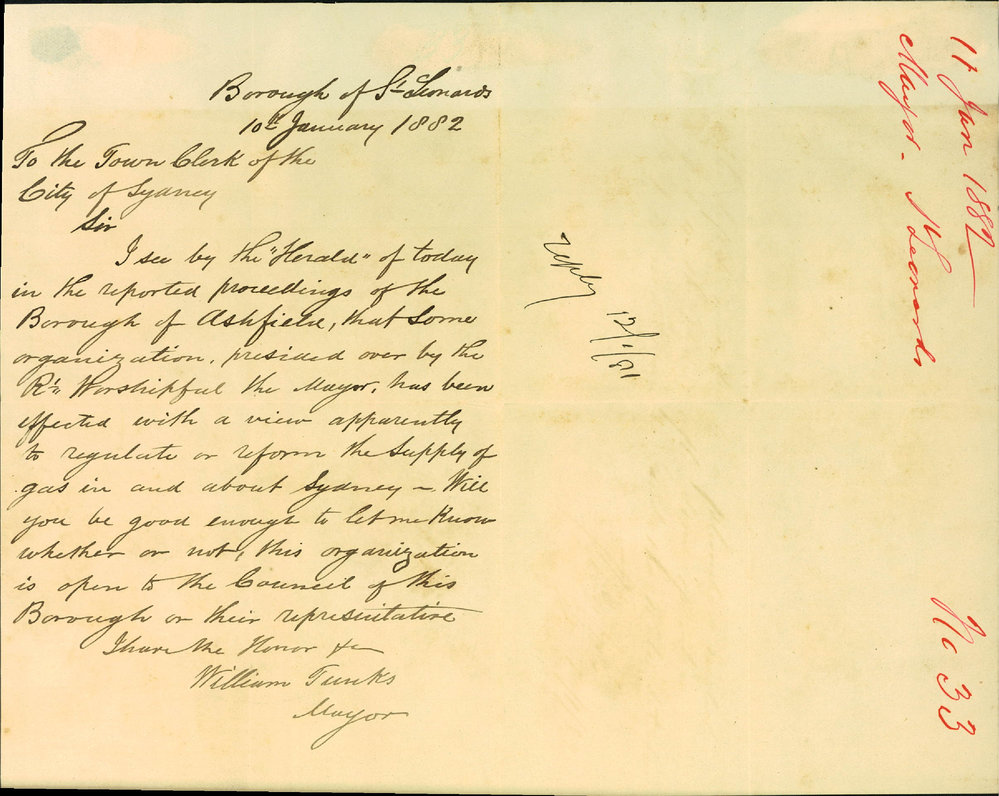 Borough of St Leonards
10th January 1882
To the Town Clerk of the
City of Sydney
Sir
I see by the "Herald" of today
in the reported proceedings of the
Borough of Ashfield, that some
organization, presided over by the
Rt Worshipful the Mayor, has been
effected with a view apparently
to regulate or reform the Supply of
gas in and about Sydney - Will
you be good enough to let me Know
whether or not, this organization
is open to the Council of this
Borough or their representative
I have the Honor &c
William Tunks
Mayor
reply
12/1/81
11 Jan 1882
Mayor - St Leonards
No 33